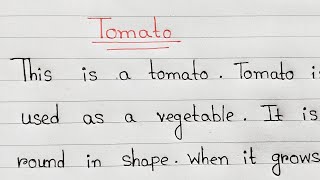 Tomato
This is a tomato. Tomato is
used as a vegetable. It is
round in shape. When it grows